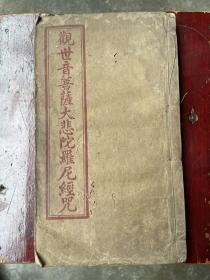 觀世音菩薩大悲陀羅尼經咒